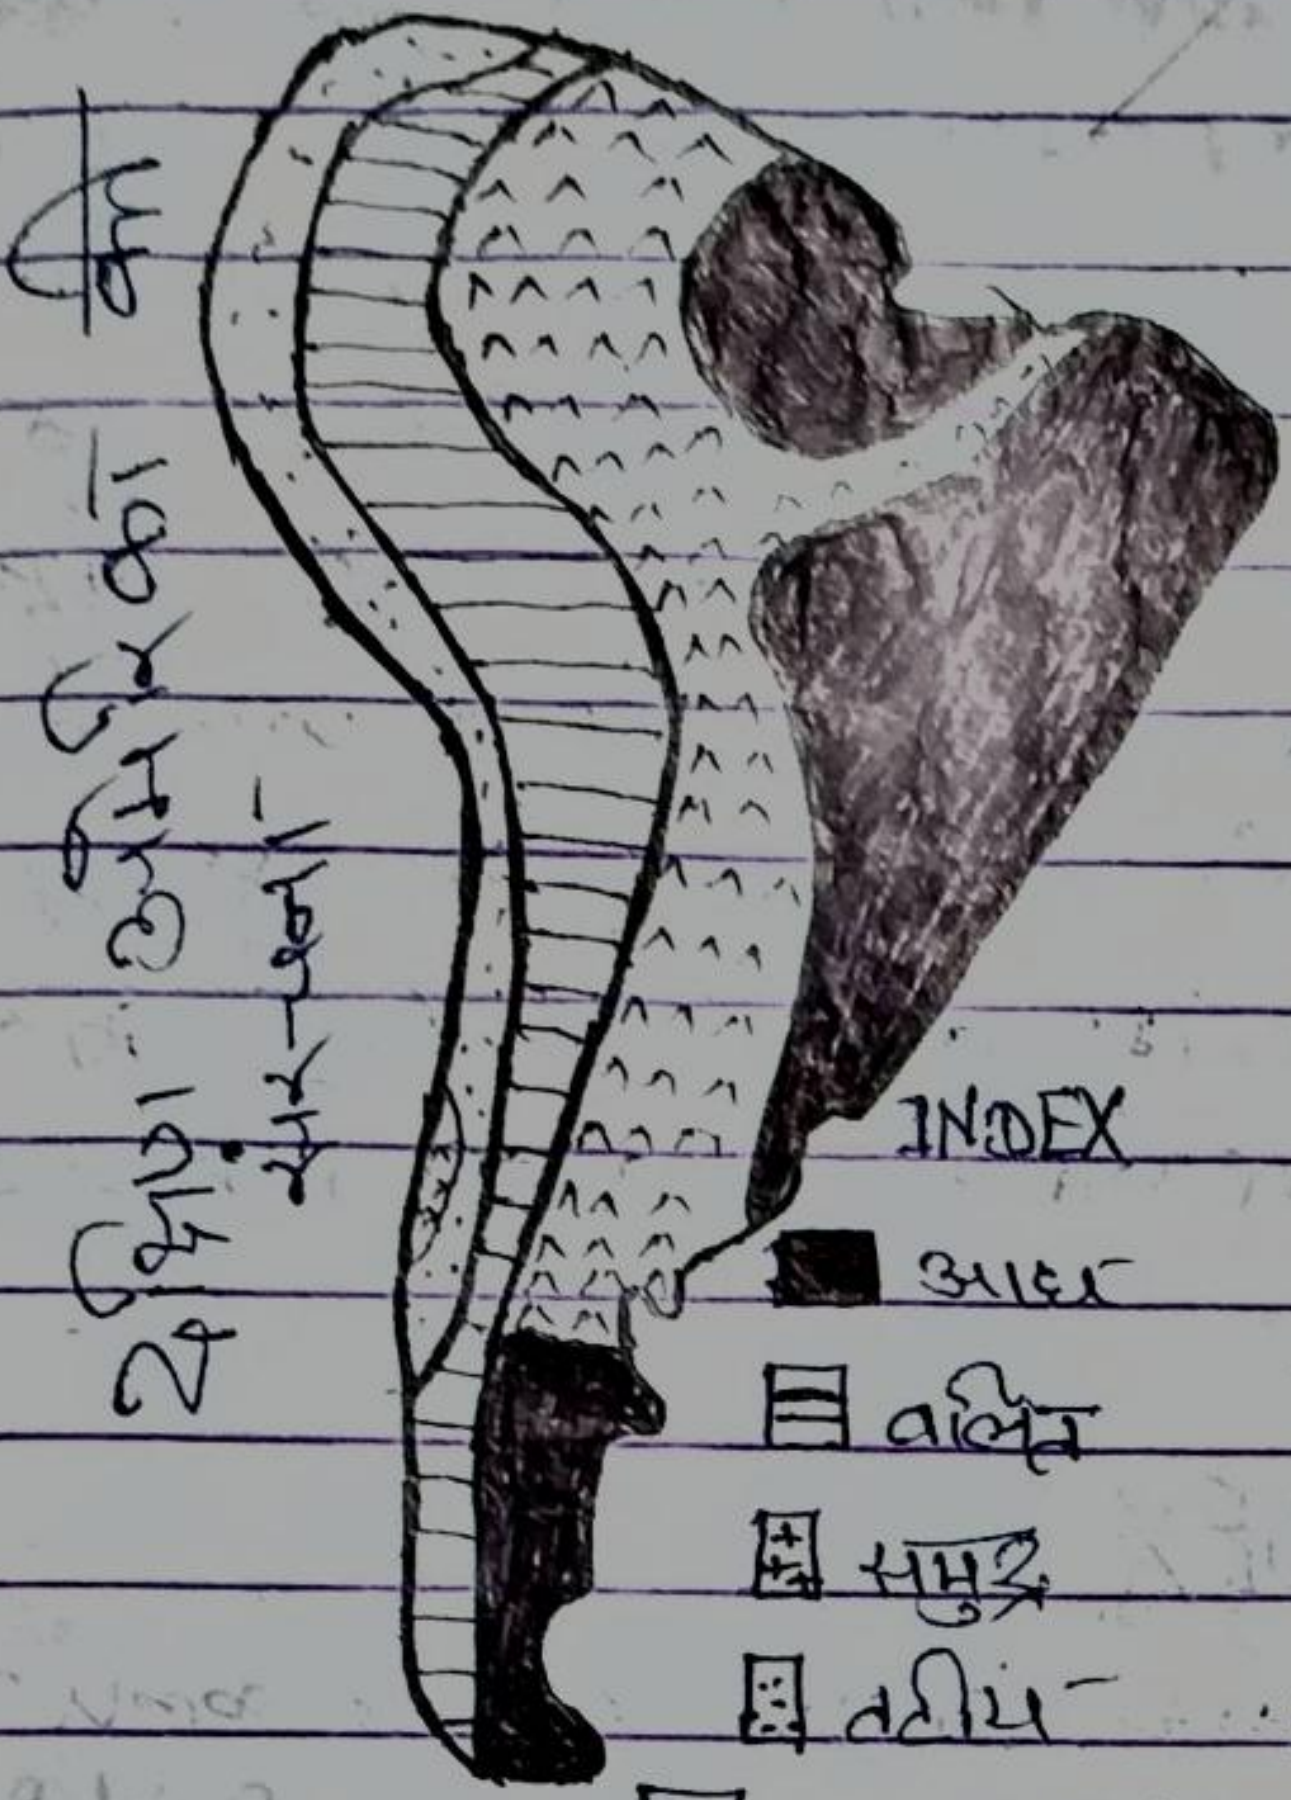 दक्षिण अमेरिका की
संरचना
INDEX
आद्य
वलित
समुद्र
तटीय